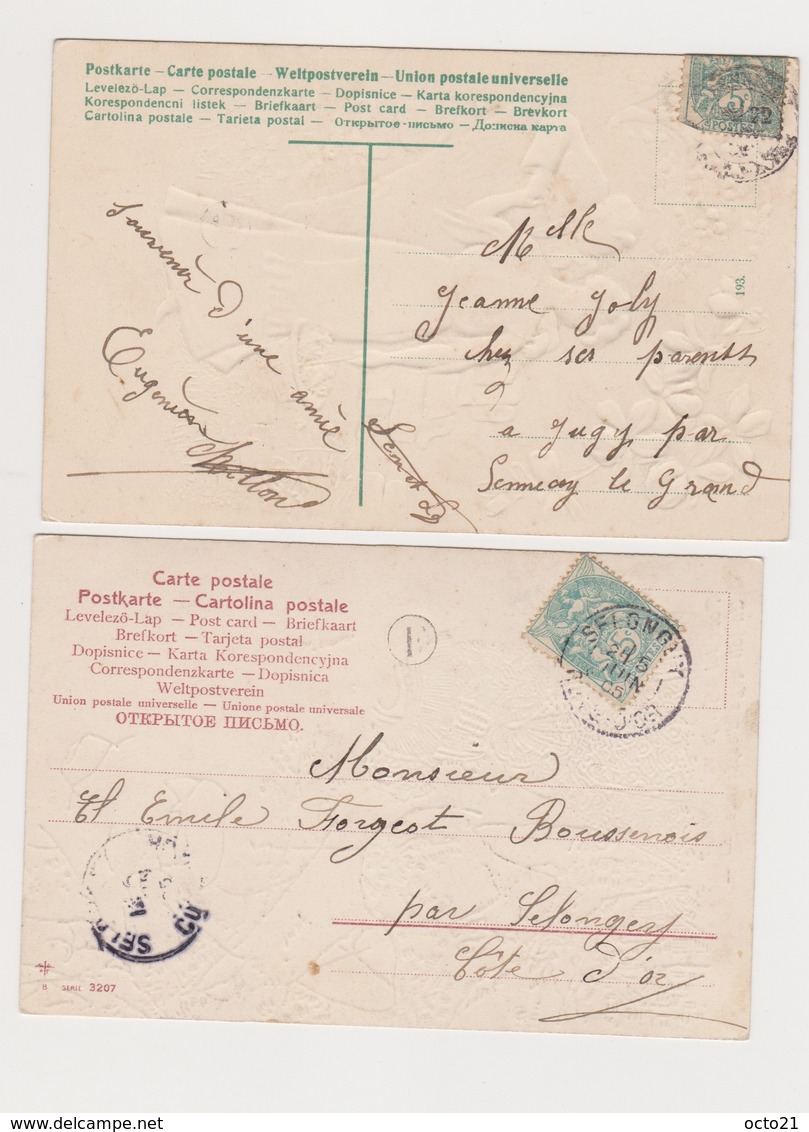 Postkarte – Carte postale – Weltpostverein – Union postale universelle
Levelezö-Lap – Correspondenzkarte – Dopisnice – Karta korespondencyjna
Korespondencni listek – Briefkaart – Post card – Brefkort – Brevkort
Cartolina postale – Tarjeta postal – Открытое-письмо – Дописна карта
5
POSTES
Souvenir d'une année
Eugénie
Melle
Jeanne Joly
chez ses parents
a Jugy par
Sennecey le Grand
193.
Carte postale
Postkarte — Cartolina postale
Levelezö-Lap — Post card — Briefkaart
Brefkort — Tarjeta postal
Dopisnice — Karta Korespondencyjna
Correspondenzkarte — Dopisnica
Weltpostverein
Union postale universelle — Unione postale universale
ОТКРЫТОЕ ПИСЬМО.
SELONGEY
JUIN
05
COTE-D'OR
Monsieur
Et Emile Forgeot Boussenois
par Selongey
Côte d'or
B SERIE 3207
octo21